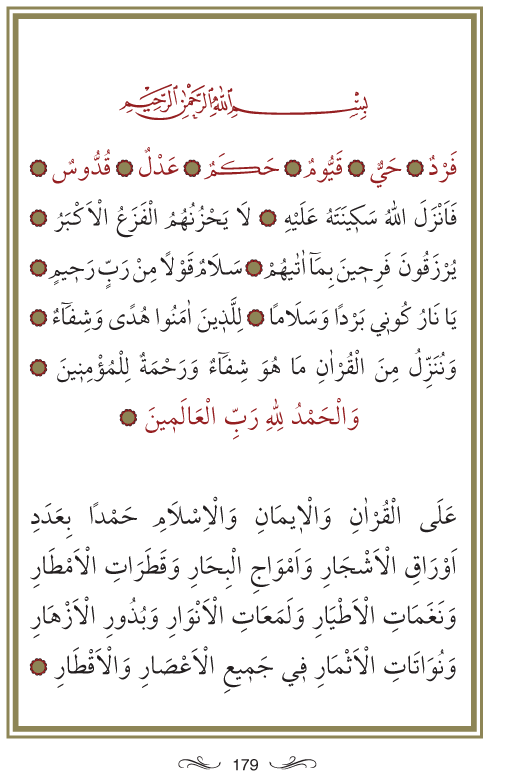 بِسْمِ اللّٰهِ الرَّحْمٰنِ الرَّحِيمِ
فَرْدٌ ۞ حَيٌّ ۞ قَيُّومٌ ۞ حَكَمٌ ۞ عَدْلٌ ۞ قُدُّوسٌ ۞
فَاَنْزَلَ اللهُ سَكٖينَتَهُ عَلَيْهِ ۞ لَا يَحْزُنُهُمُ الْفَزَعُ الْاَكْبَرُ ۞
يُرْزَقُونَ فَرِحٖينَ بِمَٓا اٰتٰيهُمْ ۞ سَلَامٌ قَوْلًا مِنْ رَبٍّ رَحٖيمٍ ۞
يَا نَارُ كُونٖي بَرْدًا وَسَلَامًا ۞ لِلَّذٖينَ اٰمَنُوا هُدًى وَشِفَٓاءٌ ۞
وَنُنَزِّلُ مِنَ الْقُرْاٰنِ مَا هُوَ شِفَٓاءٌ وَرَحْمَةٌ لِلْمُؤْمِنٖينَ ۞
وَالْحَمْدُ لِلّٰهِ رَبِّ الْعَالَمٖينَ ۞
عَلَى الْقُرْاٰنِ وَالْاٖيمَانِ وَالْاِسْلَامِ حَمْدًا بِعَدَدِ
اَوْرَاقِ الْاَشْجَارِ وَاَمْوَاجِ الْبِحَارِ وَقَطَرَاتِ الْاَمْطَارِ
وَنَغَمَاتِ الْاَطْيَارِ وَلَمَعَاتِ الْاَنْوَارِ وَبُذُورِ الْاَزْهَارِ
وَنُوَاتَاتِ الْاَثْمَارِ فٖي جَمٖيعِ الْاَعْصَارِ وَالْاَقْطَارِ ۞
179